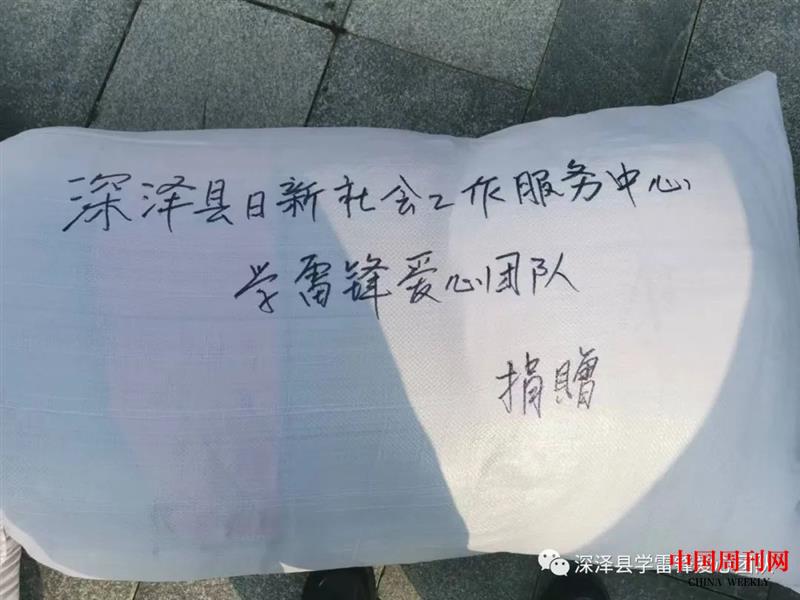 深泽县日新社会工作服务中心
学雷锋爱心团队
捐赠
深泽县学雷锋爱心团队
中国周刊网
CHINA WEEKLY